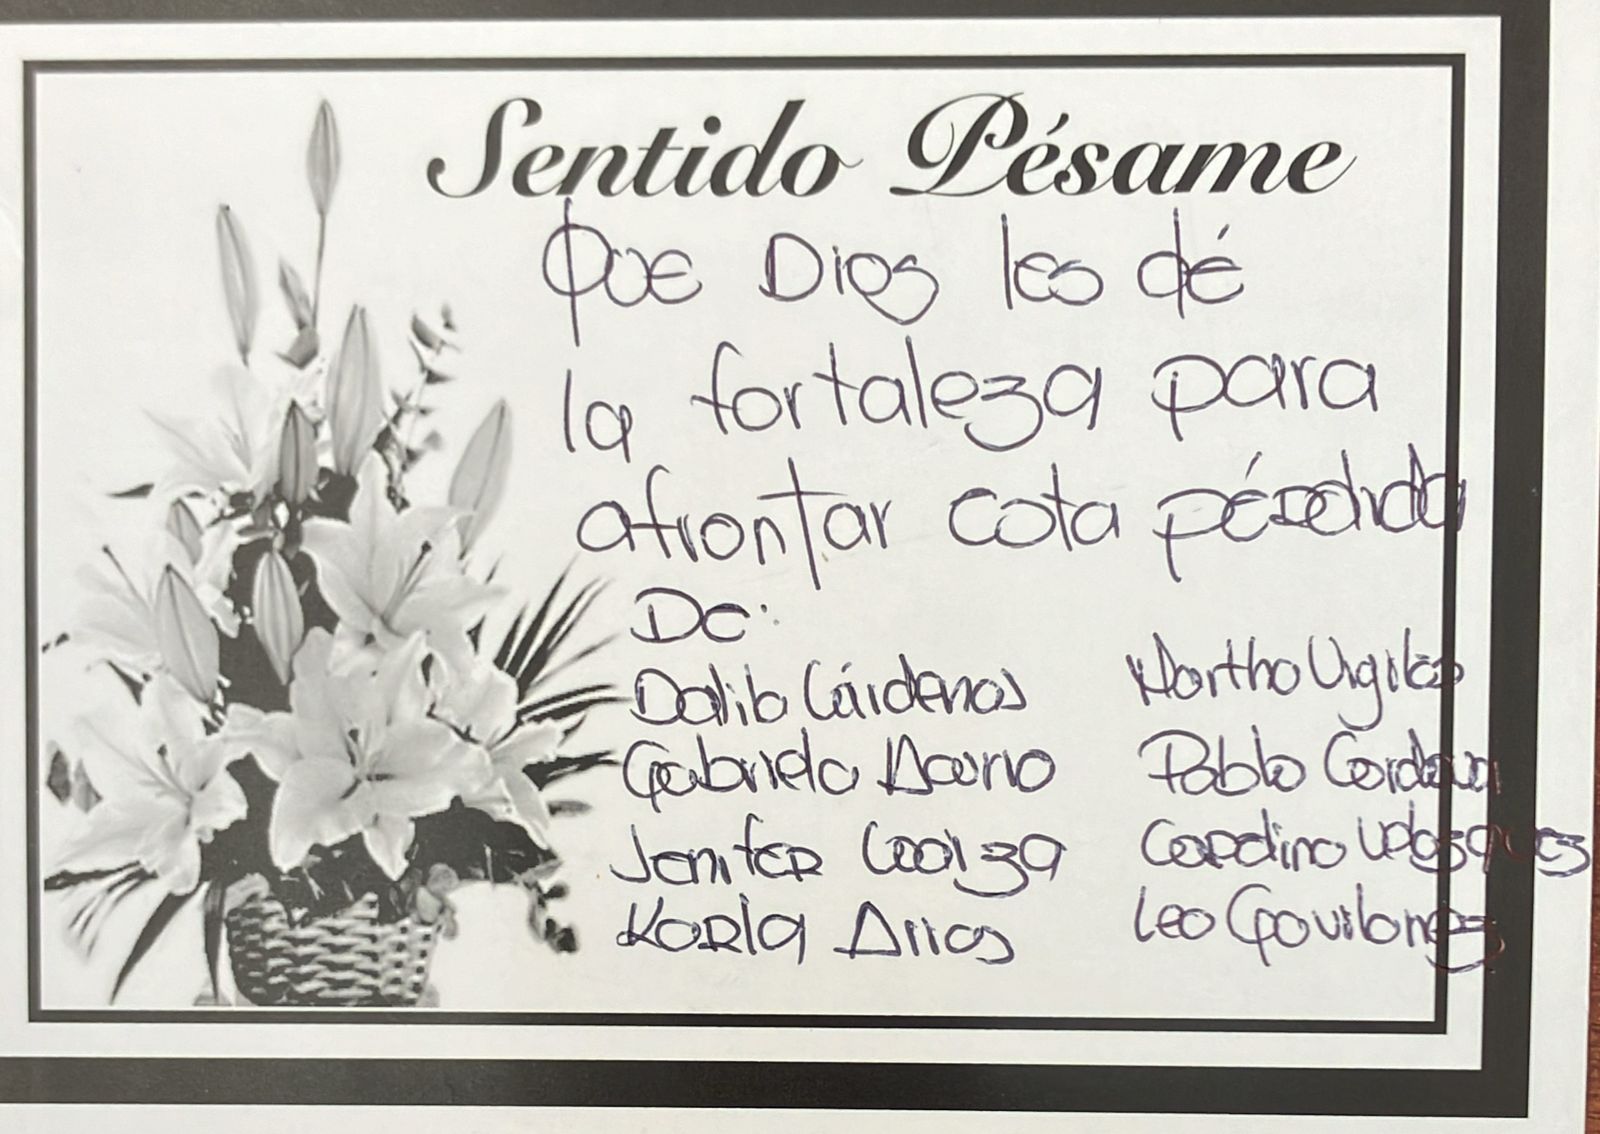 Sentido Pésame
Que Dios les dé
la fortaleza para
afrontar esta pérdida
De:
Dalila Cárdenas
Gabriela
Jenifer Loaiza
Karla Arias
Martha Vigiles
Pablo Cordova
Carolina Velasques
Leo Gavilanez